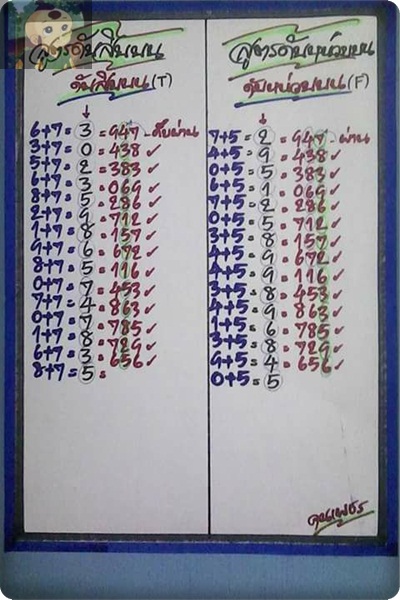 สูตรดับสิบบน
ดับสิบบน(T)
6+7=3=947
3+7=0=438 ✓
5+7=2=383 ✓
6+7=3=069 ✓
8+7=5=286 ✓
2+7=9=712 ✓
1+7=8=157 ✓
9+7=6=672 ✓
8+7=5=116 ✓
0+7=7=453 ✓
7+7=4=863 ✓
0+7=7=785 ✓
1+7=8=729 ✓
6+7=3=656 ✓
8+7=5=
สูตรดับหน่วยบน
ดับหน่วยบน(F)
7+5=2=947-ผ่าน
4+5=9=438 ✓
0+5=5=383 ✓
6+5=1=069 ✓
7+5=2=286 ✓
0+5=5=712 ✓
3+5=8=157 ✓
4+5=9=672 ✓
4+5=9=116 ✓
3+5=8=453 ✓
4+5=9=863 ✓
1+5=6=785 ✓
3+5=8=729 ✓
9+5=4=656 ✓
0+5=5